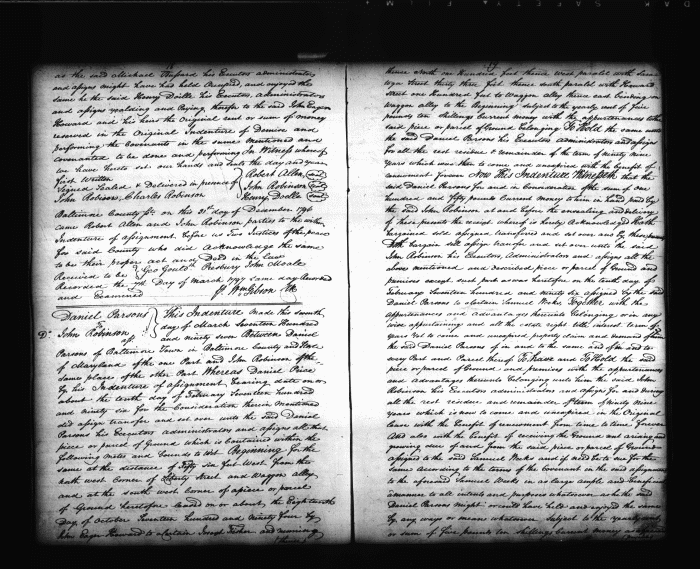 as the said Michael Shepard his Executors administrators
and assigns might have has held Occupied, and enjoyed the
same he the said Henry Doella his Executors, administrators
and assigns yealding and Paying therefor to the said John Eager
Howard and his heirs the Original rent or sum of money
reserved in the Original Indenture of Demise and
performing the Covenants in the same Mentioned and
covenanted to be done and performing In Witness whereof
we have hereto set our hands and seals the day and year
first Written
Signed Sealed & Delivered in presence of
John Robinson, Charles Robinson
Robert Allen
John Robinson
Henry Doella
Baltimore County Sc. on this 31st day of December 1796
came Robert Allen and John Robinson parties to the within
Indenture of assignment before us two Justices of the peace
for said County who did Acknowledge the same
to be their proper act and Deed in the Law
Received to be Geo Gould Presbury John Moale
Recorded the 7th Day of March 1797 same day Recorded
and Examined Wm Gibson Clk
Daniel Parsons
To
John Robinson
This Indenture Made this seventh
day of March Seventeen Hundred
and Ninety seven Between Daniel
Parsons of Baltimore Town in Baltimore County and State
of Maryland of the one Part and John Robinson of the
same place of the other Part Whereas Daniel Price
by his Indenture of assignment, bearing date on or
about the tenth day of February Seventeen hundred
and ninety six for the Consideration therein Mentioned
did assign transfer and set over unto the said Daniel
Parsons his Executors administrators and assigns all that
piece or parcel of Ground which is Contained within the
following metes and bounds to Wit Beginning for the
same at the distance of Fifty six feet West from the
north west Corner of Liberty Street and Waggon alley,
and at the south west Corner of a piece or parcel
of Ground heretofore leased on or about, the Eighteenth
Day of October Seventeen hundred and Ninety four by
John Eager Howard to a Certain Joseph Fisher and running
thence North on Hundred feet thence West paralel with
Street thirty three feet thence south paralel with Howard
Street one hundred feet to Waggon alley thence east binding on
Waggon alley to the Beginning subject to the yearly rent of five
pounds ten shillings Current money with the appurtenances to the
said piece or parcel of Ground belonging To Hold the same unto
the said Daniel Parsons his Executors administrators and assigns
for all the rest residue & remainder of the term of ninety nine
years which was then to come and unexpired with the benefit of
renewment forever Now This Indenture Witnesseth that the
said Daniel Parsons for and in Consideration of the sum of one
hundred and fifty pounds Current Money to him in hand paid by
the said John Robinson at and before the ensealing and delivery
of these presents the receipt whereof is hereby Acknowledged Hath
bargained sold assigned transferred and set over and by these presents
Doth bargain sell assign transfer and set over unto the said
John Robinson his Executors, Administrators and assigns all the
above mentioned and described piece or parcel of Ground and
premises except such part as was heretofore, on the tenth day of
February Seventeen hundred and ninety six assigned by the said
Daniel Parsons to a Certain Samuel Weeks Together with the
appurtenances and advantages thereunto belonging or in any
wise appertaining and all the estate right title interest term of
years yet to come and unexpired property claim and demand of him
the said Daniel Parsons of in and to the same and of in and to
every Part and Parcel thereof To have and To Hold the said
piece or parcel of Ground and premises with the appurtenances
and Advantages thereunto belonging unto him the said John
Robinson his Executors administrators and assigns for and during
all the rest residue and remainder of term of Ninety Nine
years which is now to come and unexpired in the Original
lease with the benefit of renewment from time to time forever
And also with the benefit of receiving the Ground rent arising and
growing over of and from the said piece or parcel of Ground
assigned to the said Samuel Weeks and if need be to sue for the
same according to the terms of the Covenant in the said assignment
to the aforesaid Samuel Weeks in as large ample and beneficial
a manner to all intents and purposes whatsoever as he the said
Daniel Parsons might or could have held and enjoyed the same
by any ways or means whatsoever Subject to the yearly rent
or sum of Five pounds ten shillings current money